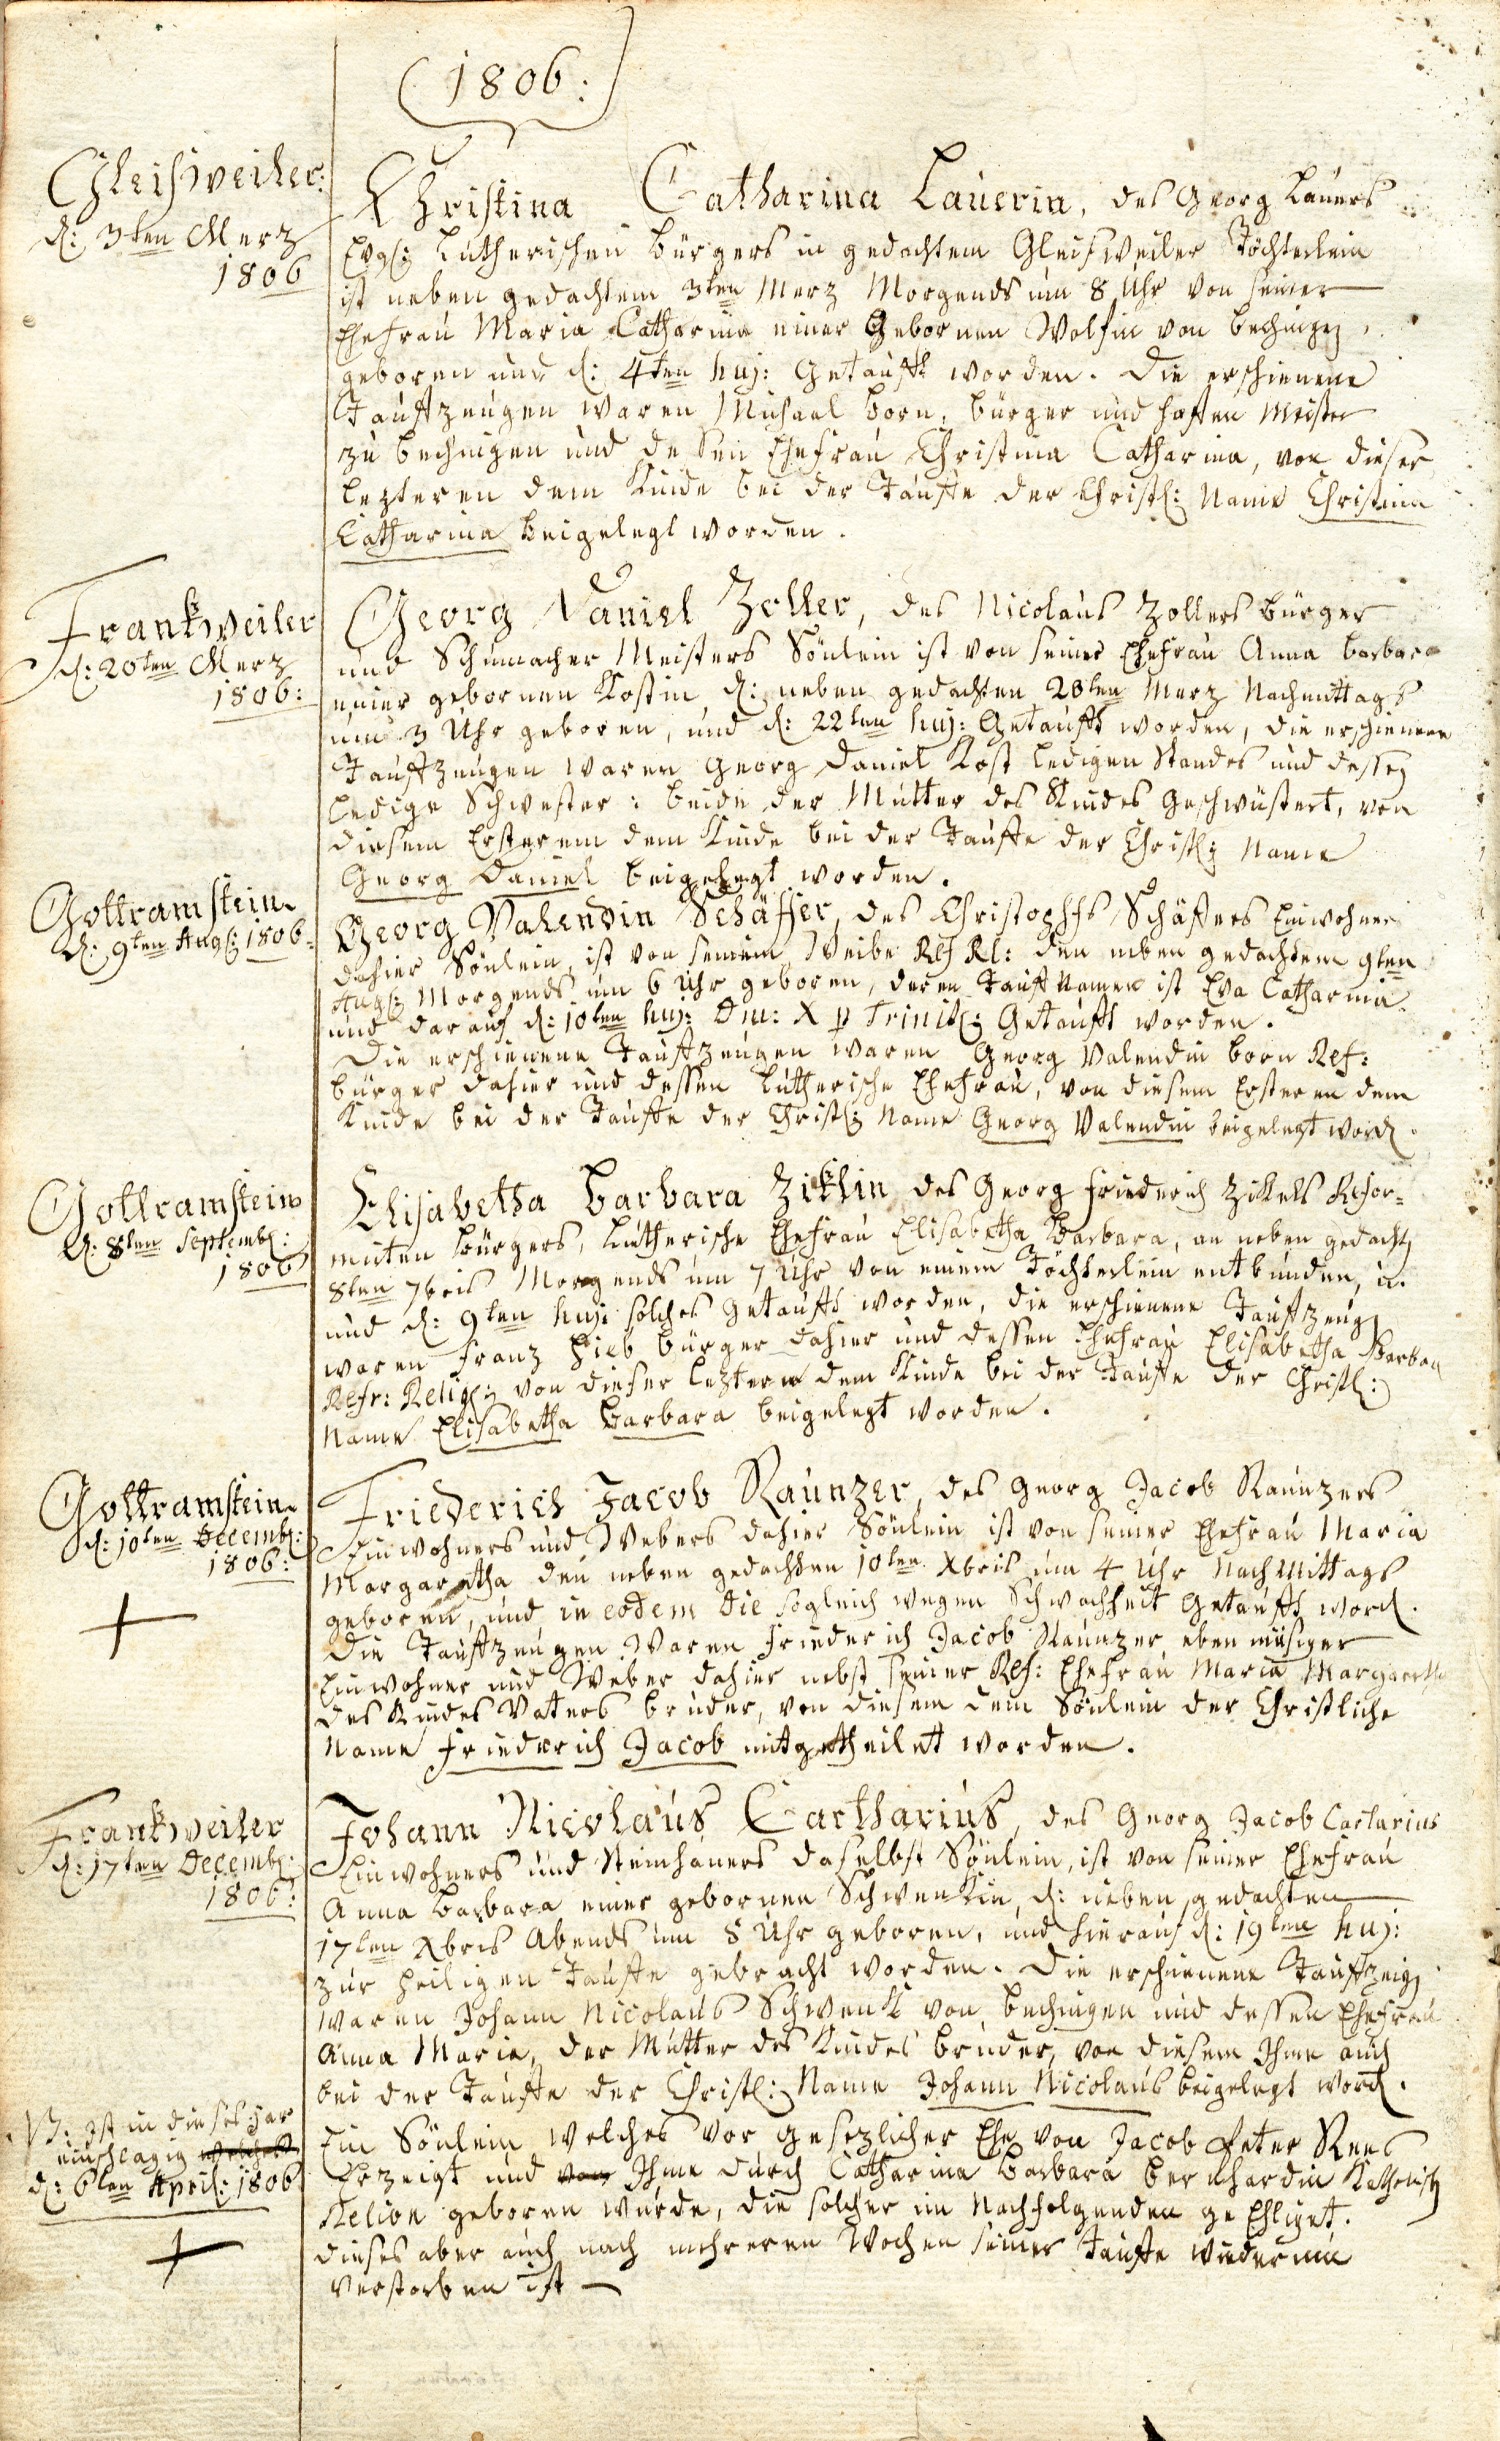 (1806:)
Gleisweiler:
d: 3ten Merz
1806
Christina Catharina Lauerin, des Georg Lauers
Evgl: Lutherischen Bürgers in gedachtem Gleisweiler Töchterlein
ist neben gedachtem 3ten Merz Morgends um 8 Uhr von seiner
Ehefrau Maria Catharina einer Gebornen Wolfin von Bechingen
geboren und d: 4ten huj: Getaufft worden. Die erschienene
Tauffzeugen waren Michael Born, Bürger und Hafen Meister
zu Bechingen und dessen Ehefrau Christina Catharina, von dieser
lezteren dem Kinde bei der Tauffe der Christl: Name Christina
Catharina beigelegt worden.
Frankweiler
d: 20ten Merz
1806:
Georg Daniel Zoller, des Nicolaus Zollers Bürger
und Schumacher Meisters Sönlein ist von seiner Ehefrau Anna Barbara
einer gebornen Kostin, d: neben gedachten 20ten Merz Nachmittags
um 3 Uhr geboren, und d: 22ten huj: Getaufft worden, die erschienene
Tauffzeugen waren Georg Daniel Kost ledigen Standes und dessen
ledige Schwester: beide der Mutter des Kindes Geschwüstert, von
diesem Ersterem dem Kinde bei der Tauffe der Christl: Name
Georg Daniel beigelegt worden.
Gottramstein
d: 9ten Augs: 1806:
Georg Valendin Schäffer, des Christophs Schäffers Einwohner
dahier Sönlein, ist von seinem Weibe Ref Rl: den neben gedachtem 9ten
Augs: Morgends um 6 Uhr geboren, deren Tauff Namen ist Eva Catharina
und darauf d: 10ten huj: Dm: X p Trinit: Getaufft worden.
Die erschienene Tauffzeugen waren Georg Valendin Born Ref:
Bürger dahier und dessen Lutherische Ehefrau, von diesem Ersteren dem
Kinde bei der Tauffe der Christl: Name Georg Valendin beigelegt word.
Gottramstein
d: 8ten Septembr:
1806
Elisabetha Barbara Ziklin des Georg Friederich Zikels Refor=
mirten Bürgers, Lutherische Ehefrau Elisabetha Barbara, an neben gedacht
8ten 7bris Morgends um 7 Uhr von einem Töchterlein entbunden, u.
und d: 9ten huj: solches Getaufft worden, die erschienene Tauffzeug
waren Franz Hieb Bürger dahier und dessen Ehefrau Elisabetha Barbara
Refr: Relig: von dieser leztern dem Kinde bei der Tauffe der Christl:
Name Elisabetha Barbara beigelegt worden.
Gottramstein
d: 10ten Decembr:
1806:
Friederich Jacob Raunzer, des Georg Jacob Raunzers
Einwohners und Webers dahier Sönlein ist von seiner Ehefrau Maria
Margaretha den neben gedachten 10ten Xbris um 4 Uhr Nachmittags
geboren, und in eodem die sogleich wegen Schwachheit Getaufft word.
Die Tauffzeugen waren Friederich Jacob Raunzer eben mäsiger
Einwohner und Weber dahier nebst seiner Ref: Ehefrau Maria Margaretha
des Kindes Vaters Bruder, von diesem dem Sönlein der Christliche
Name Friederich Jacob mitgetheilet worden.
Frankweiler
d: 17ten Decembr:
1806:
Johann Nicolaus Cartharius, des Georg Jacob Cartarius
Einwohners und Steinhauers daselbst Sönlein, ist von seiner Ehefrau
Anna Barbara einer gebornen Schwenkin, d: neben gedachten
17ten Xbris Abends um 8 Uhr geboren, und hierauf d: 19ten huj:
zur heiligen Tauffe gebracht worden. Die erschienene Tauffzeug
waren Johann Nicolaus Schwenk von Bechingen und dessen Ehefrau
Anna Maria, der Mutter des Kindes Bruder, von diesem Ihme auch
bei der Tauffe der Christl: Name Johann Nicolaus beigelegt word.
NB: ist in dieses Jar
einschlagig
d: 6ten April: 1806
Ein Sönlein welches vor Gesezlicher Ehe von Jacob Peter Rees
Erzeigt und von Ihme durch Catharina Barbara Bernhardin Katholisch
Relion geboren wurde, die solcher im Nachfolgenden geEhliget.
dieses aber auch nach mehreren Wochen seiner Tauffe wiederum
verstorben ist —